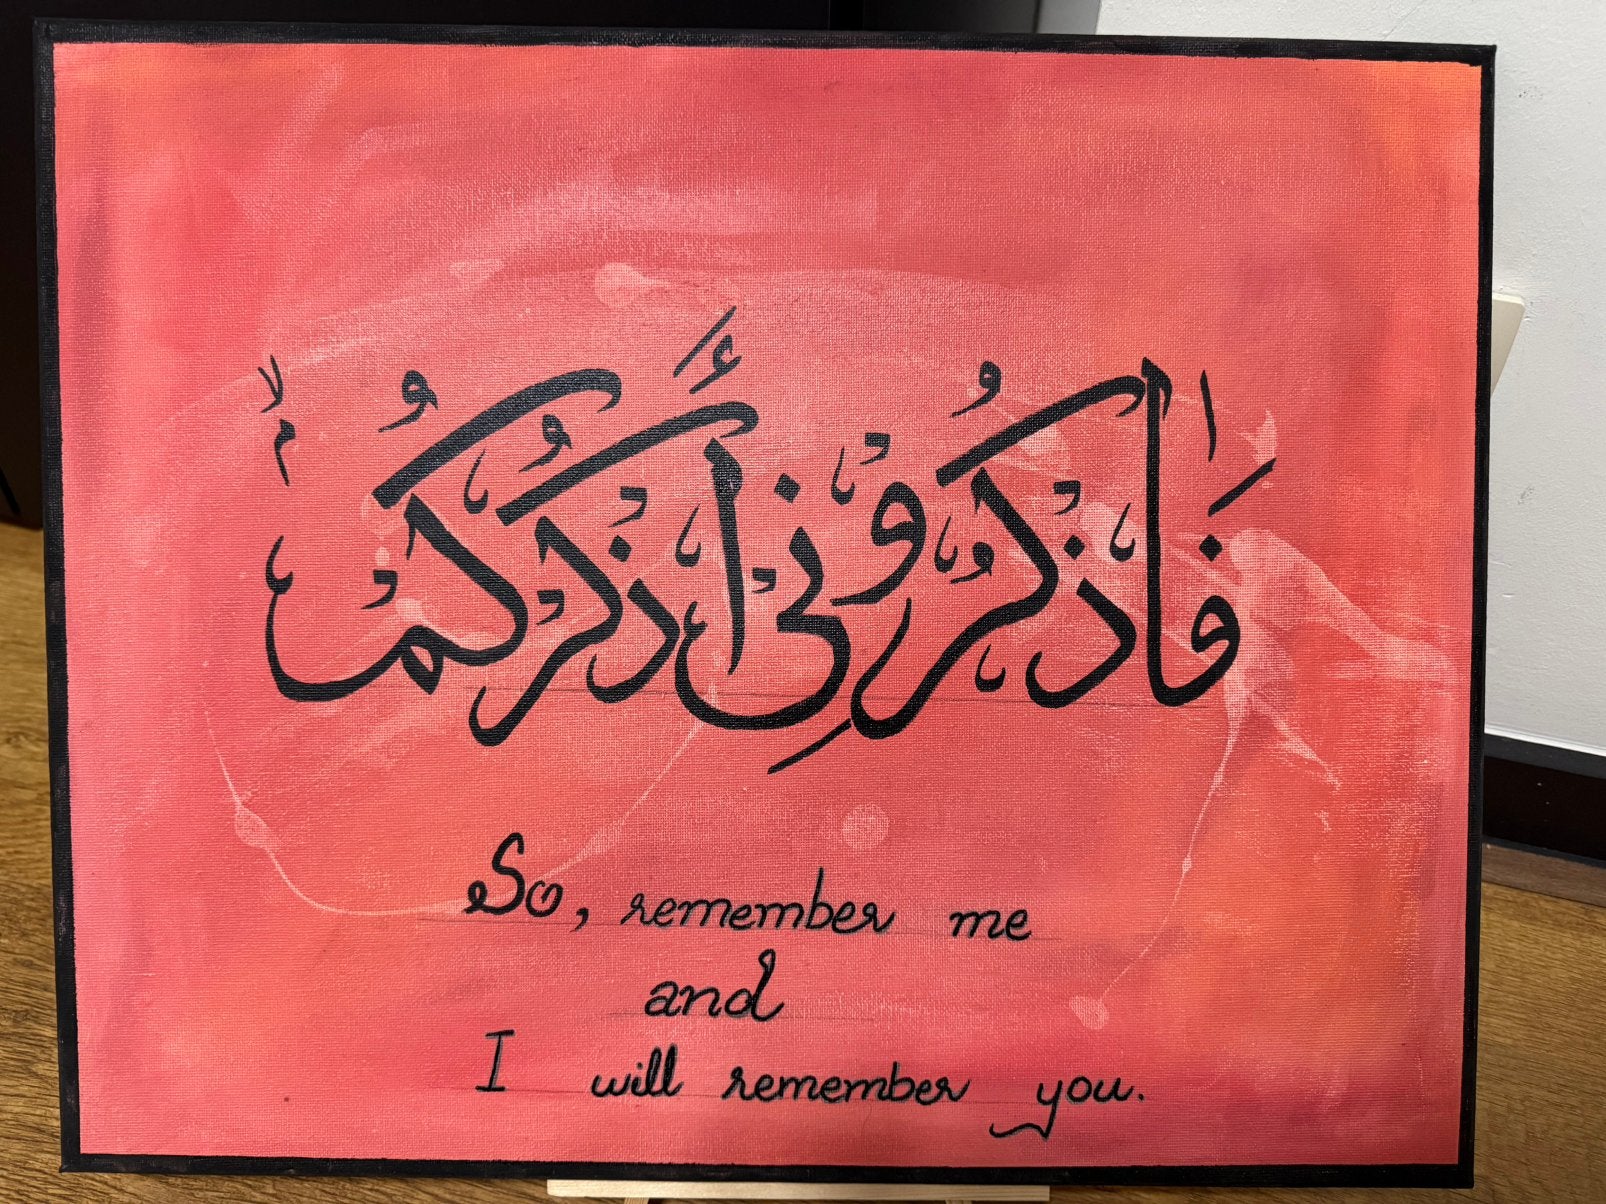 فَاذْكُرُونِي أَذْكُرْكُمْ
So, remember me
and
I will remember you.